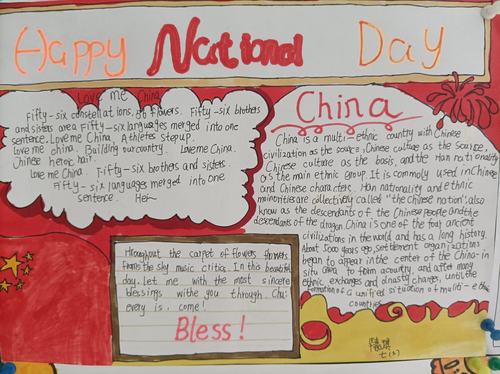 Happy National Day
Love me China
Fifty-six constellations, 56 flowers. Fifty-six brothers
and sisters are a Fifty-six languages merged into one
sentence. Love me China. Athletes step up.
love me china. Building our country. Love me China.
Chinese heroic hair.
Love me China. Fifty-six brothers and sisters.
Fifty-six languages merged into one
sentence.
China
China is a multi-ethnic country with Chinese
civilization as the source, Chinese culture as the source,
Chinese culture as the basis, and the Han nationality
as the main ethnic group. It is commoly used in Chinese
and Chinese characters. Han nationality and ethnic
minorities are collectively called "the Chinese nation", also
know as the descendants of the Chinese people and the
descendants of the dragon. China is one of the four ancient
civilizations in the world and has a long history.
About 5000 years ago, settlement organizations
began to appear in the center of the China-in
situ to form a country, and after many
ethnic exchanges and dynasty changes, until the
formation of a unified situation of multi-ethnic
countries.
throughout the carpet of flowers flowers
from the sky music critic. In this beautiful
day. let me with the most sincere
blessings withe you through. Chu:
every is. come!
Bless!
七(3)